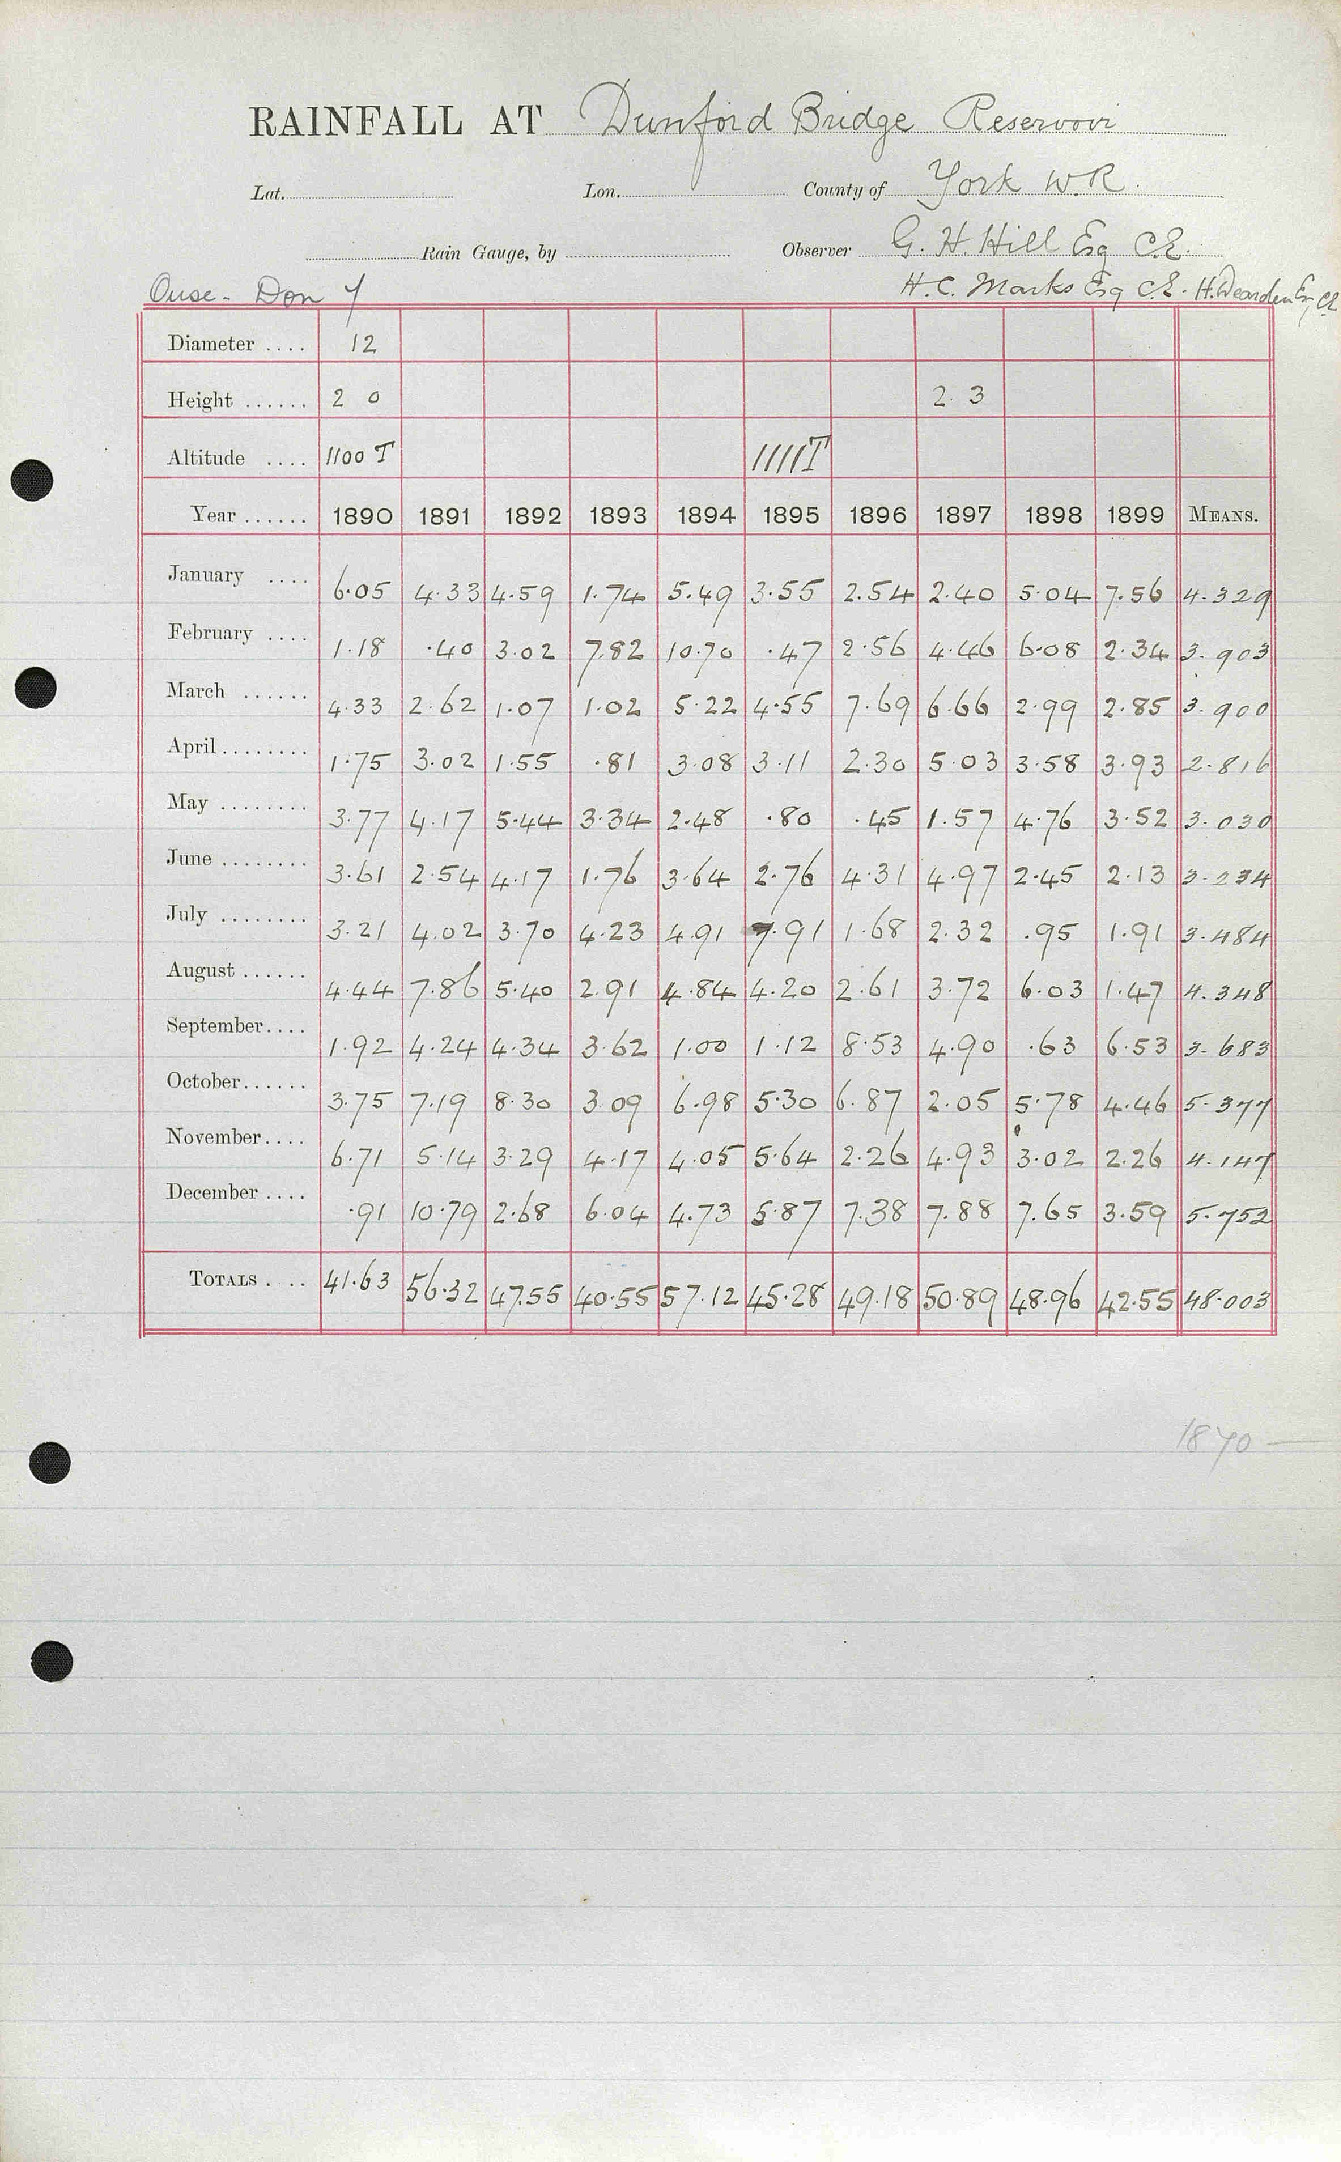 RAINFALL AT Dunford Bridge Reservoir
Lat. Lon. County of York W.R.
Rain Gauge, by Observer G. H. Hill Esq C.E.
Ouse - Don 7 H. C. Marks Esq C.E. H. Dearden Esq CE
Diameter .... 12
Height ...... 2 0 2 3
Altitude .... 1100 T 1111T
Year ...... 1890 1891 1892 1893 1894 1895 1896 1897 1898 1899 MEANS.
January .... 6.05 4.33 4.59 1.74 5.49 3.55 2.54 2.40 5.04 7.56 4.329
February .... 1.18 .40 3.02 7.82 10.70 .47 2.56 4.46 6.08 2.34 3.903
March ...... 4.33 2.62 1.07 1.02 5.22 4.55 7.69 6.66 2.99 2.85 3.900
April ........ 1.75 3.02 1.55 .81 3.08 3.11 2.30 5.03 3.58 3.93 2.816
May ........ 3.77 4.17 5.44 3.34 2.48 .80 .45 1.57 4.76 3.52 3.030
June ........ 3.61 2.54 4.17 1.76 3.64 2.76 4.31 4.97 2.45 2.13 3.234
July ........ 3.21 4.02 3.70 4.23 4.91 7.91 1.68 2.32 .95 1.91 3.484
August ...... 4.44 7.86 5.40 2.91 4.84 4.20 2.61 3.72 6.03 1.47 4.348
September .... 1.92 4.24 4.34 3.62 1.00 1.12 8.53 4.90 .63 6.53 3.683
October ...... 3.75 7.19 8.30 3.09 6.98 5.30 6.87 2.05 5.78 4.46 5.377
November .... 6.71 5.14 3.29 4.17 4.05 5.64 2.26 4.93 3.02 2.26 4.147
December .... .91 10.79 2.68 6.04 4.73 5.87 7.38 7.88 7.65 3.59 5.752
TOTALS .... 41.63 56.32 47.55 40.55 57.12 45.28 49.18 50.89 48.96 42.55 48.003
1870 —